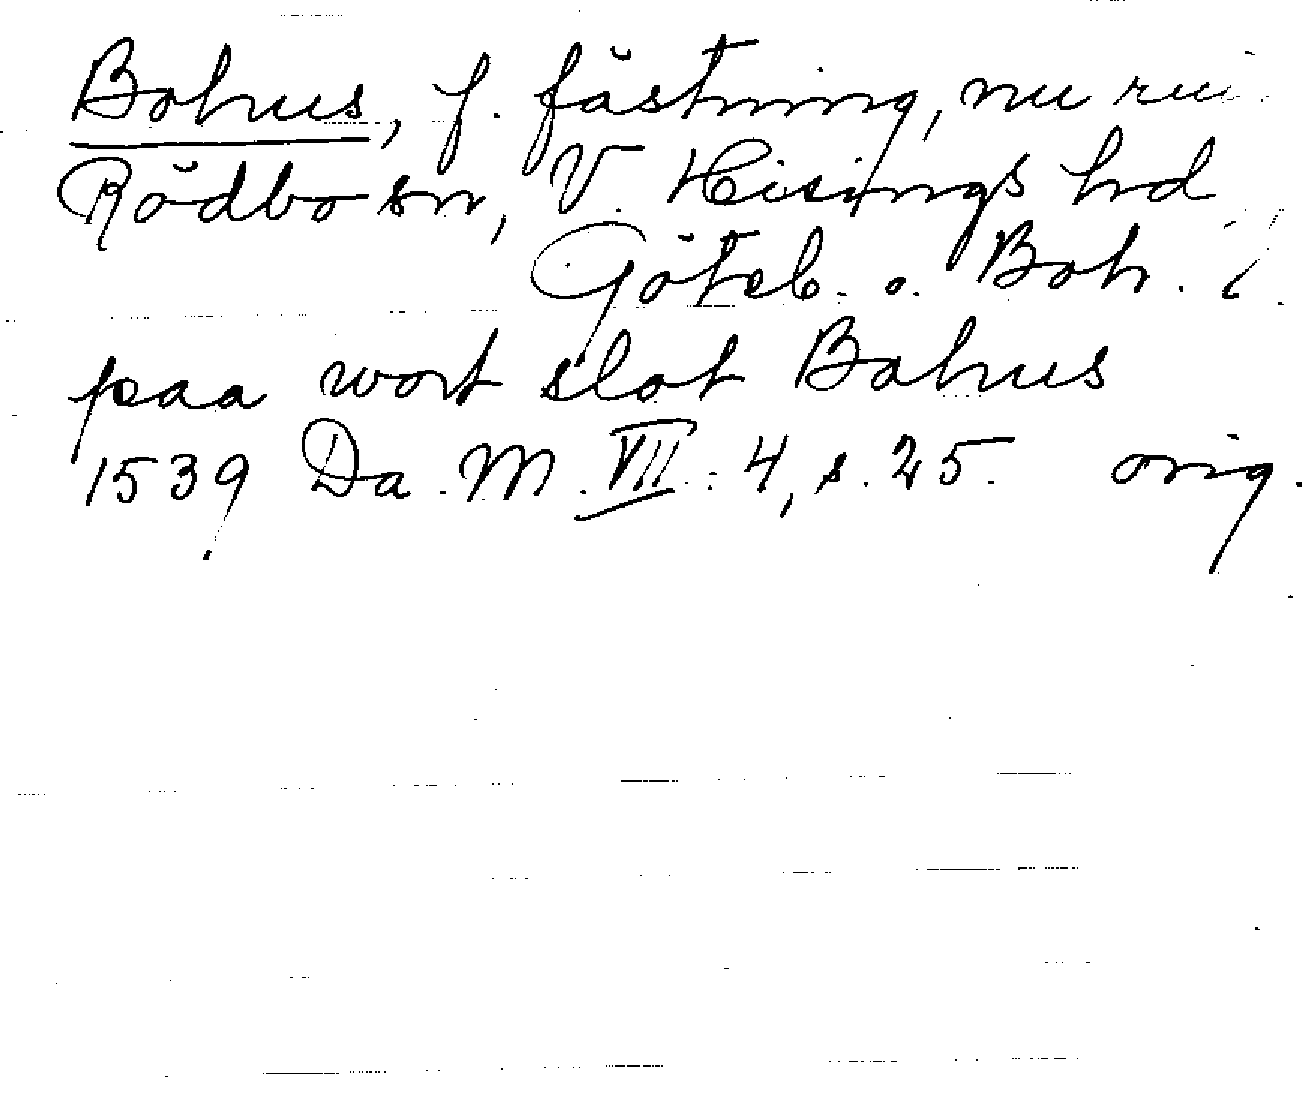 Bohus, f. fästning, nu rui
Rödbo sn, V. Hisings hd
Göteb. o. Boh. l.
paa wort slot Bahus
1539 Da. M. VII: 4, s. 25. orig.